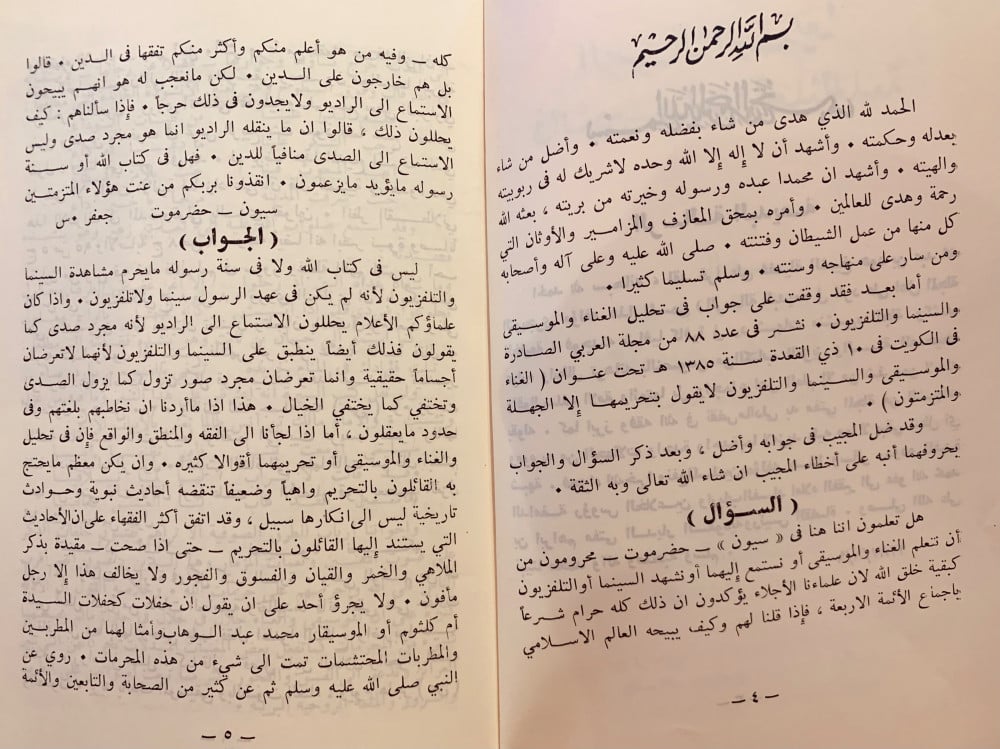 بسم الله الرحمن الرحيم
الحمد لله الذي هدى من شاء بفضله ونعمته . وأضل من شاء
بعدله وحكمته . وأشهد أن لا إله إلا الله وحده لاشريك له فى ربوبيته
والهيته . وأشهد ان محمدا عبده ورسوله وخيرته من بريته ، بعثه الله
رحمة وهدى للعالمين . وأمره بمحق المعازف والمزامير والأوثان التي
كل منها من عمل الشيطان وفتنته . صلى الله عليه وعلى آله وأصحابه
ومن سار على منهاجه وسنته . وسلم تسليما كثيرا .
أما بعد فقد وقفت على جواب فى تحليل الغناء والموسيقى
والسينما والتلفزيون . نشر فى عدد ٨٨ من مجلة العربي الصادرة
فى الكويت فى ١٠ ذي القعدة سنة ١٣٨٥ هـ تحت عنوان ( الغناء
والموسيقى والسينما والتلفزيون لايقول بتحريمها إلا الجهلة
والمتزمتون ) .
وقد ضل المجيب فى جوابه وأضل ، وبعد ذكر السؤال والجواب
بحروفهما أنبه على أخطاء المجيب ان شاء الله تعالى وبه الثقة .
( السؤال )
هل تعلمون اننا هنا فى « سيون » ـ حضرموت ـ محرومون من
أن نتعلم الغناء والموسيقى أو نستمع إليهما أونشهد السينما أوالتلفزيون
كبقية خلق الله لان علماءنا الأجلاء يؤكدون ان ذلك كله حرام شرعاً
باجماع الأئمة الاربعة ، فإذا قلنا لهم وكيف يبيحه العالم الاسلامي
ـ ٤ ـ
كله ـ وفيه من هو أعلم منكم وأكثر منكم تفقها فى الدين . قالوا
بل هم خارجون على الدين . لكن مانعجب له هو انهم يبيحون
الاستماع الى الراديو ولايجدون فى ذلك حرجاً . فإذا سألناهم : كيف
يحللون ذلك ، قالوا ان ما ينقله الراديو انما هو مجرد صدى وليس
الاستماع الى الصدى منافياً للدين . فهل فى كتاب الله أو سنة
رسوله مايؤيد مايزعمون . انقذونا بربكم من عنت هؤلاء المتزمتين
سيون ـ حضرموت جعفر . س
( الجواب )
ليس فى كتاب الله ولا فى سنة رسوله مايحرم مشاهدة السينما
والتلفزيون لأنه لم يكن فى عهد الرسول سينما ولاتلفزيون . واذا كان
علماؤكم الأعلام يحللون الاستماع الى الراديو لأنه مجرد صدى كما
يقولون فذلك أيضاً ينطبق على السينما والتلفزيون لأنهما لاتعرضان
أجساماً حقيقية وانما تعرضان مجرد صور تزول كما يزول الصدى
وتختفي كما يختفي الخيال . هذا اذا ماأردنا ان نخاطبهم بلغتهم وفى
حدود مايعقلون ، أما اذا لجأنا الى الفقه والمنطق والواقع فإن فى تحليل
والغناء والموسيقى أو تحريمهما أقوالا كثيره . وان يكن معظم مايحتج
به القائلون بالتحريم واهياً وضعيفاً تنقضه أحاديث نبوية وحوادث
تاريخية ليس الى انكارها سبيل ، وقد اتفق أكثر الفقهاء على ان الأحاديث
التي يستند إليها القائلون بالتحريم ـ حتى اذا صحت ـ مقيدة بذكر
الملاهي والخمر والقيان والفسوق والفجور ولا يخالف هذا إلا رجل
مأفون . ولا يجرؤ أحد على ان يقول ان حفلات كحفلات السيدة
أم كلثوم أو الموسيقار محمد عبد الوهاب وأمثا لهما من المطربين
والمطربات المحتشمات تمت الى شيء من هذه المحرمات . روي عن
النبي صلى الله عليه وسلم ثم عن كثير من الصحابة والتابعين والأئمة
ـ ٥ ـ